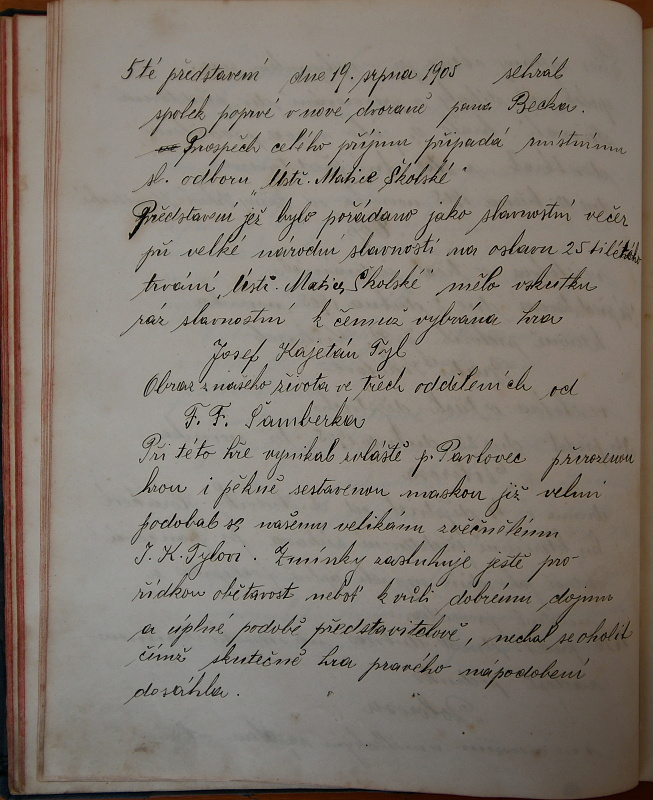 5té představení dne 19. srpna 1905 sehrál
spolek poprvé v nové dvoraně pana Becka.
Prospěch celého příjmu připadá místnímu
sl. odboru „Ústř. Matice Školské"
Představení jež bylo pořádano jako slavnostní večer
při velké národní slavnosti na oslavu 25 tiletého
trvání „Ústř. Matice Školské" mělo vskutku
ráz slavnostní k čemuž vybrána hra
Josef Kajetán Tyl
Obraz z našeho života ve třech odděleních od
F. F. Šamberka
Při této hře vynikal zvláště p. Pavlovec přirozenou
hrou i pěkně sestavenou maskou již velmi
podobal se našemu velikánu zvěčnělému
J. K. Tylovi. Zmínky zasluhuje jestě pro
řídkou obětavost neboť k vůli dobrému dojmu
a úplné podobě představitelově, nechal se oholit
čímž skutečně hra pravého nápodobení
dosáhla.